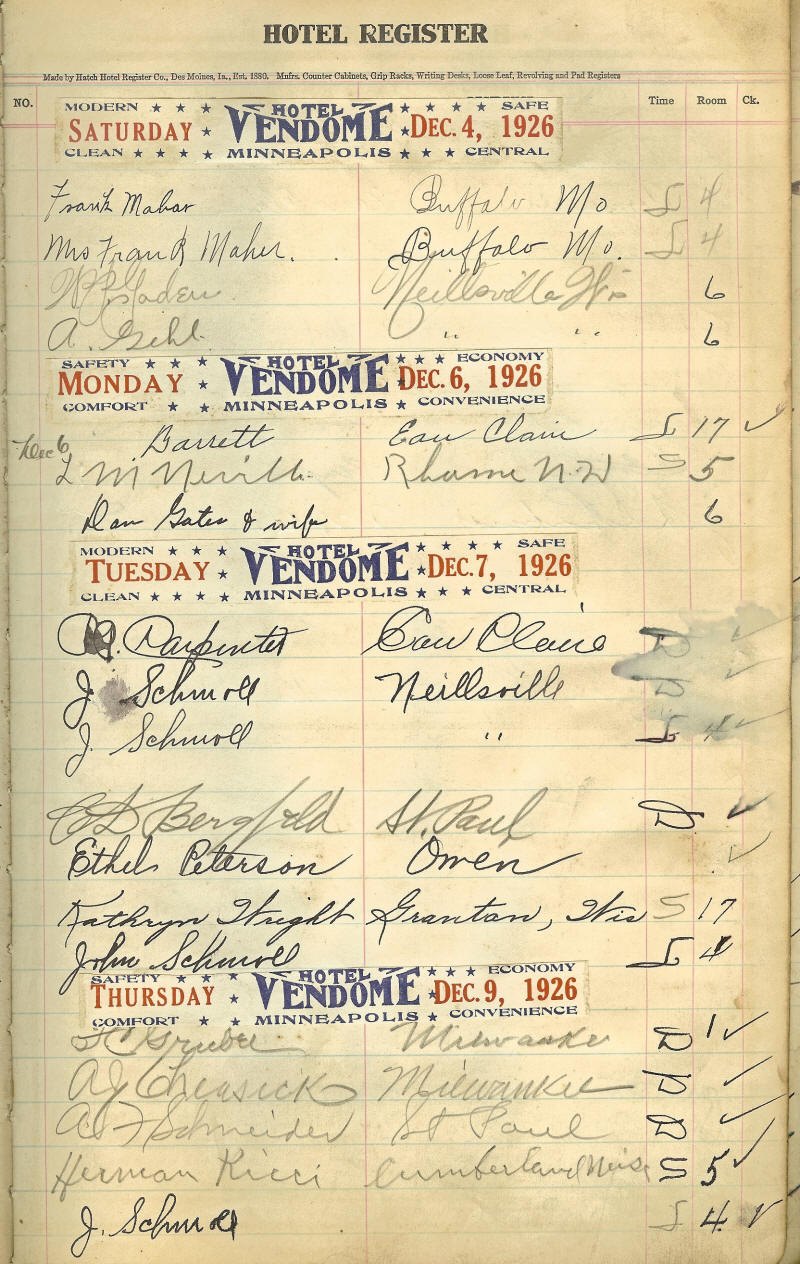 HOTEL REGISTER
Made by Hatch Hotel Register Co., Des Moines, Ia., Est. 1880. Mnfrs. Counter Cabinets, Grip Racks, Writing Desks, Loose Leaf, Revolving and Pad Registers
NO. Time Room Ck.
MODERN ★ ★ ★ HOTEL ★ ★ ★ ★ SAFE
SATURDAY ★ VENDOME ★ DEC. 4, 1926
CLEAN ★ ★ ★ ★ MINNEAPOLIS ★ ★ ★ CENTRAL
Frank Mahar Buffalo Mo L 4
Mrs Frank Maher. Buffalo Mo. L 4
Neillsville Wis 6
A. Gehl. " " 6
SAFETY ★ ★ ★ HOTEL ★ ★ ★ ECONOMY
MONDAY ★ VENDOME ★ DEC. 6, 1926
COMFORT ★ ★ MINNEAPOLIS ★ ★ CONVENIENCE
Dec 6 Barrett Eau Clair L 17 ✓
L M Nevill Rhame N.D S 5
Dan Gates & wife 6
MODERN ★ ★ ★ HOTEL ★ ★ ★ ★ SAFE
TUESDAY ★ VENDOME ★ DEC. 7, 1926
CLEAN ★ ★ ★ ★ MINNEAPOLIS ★ ★ ★ CENTRAL
Carpenter Eau Claire D ✓
J. Schmoll Neillsville D ✓
J. Schmoll " L 4 ✓
C D Bergfeld St. Paul D ✓
Ethel Peterson Owen ✓
Kathryn Wright Granton, Wis S 17
John Schmoll L 4
SAFETY ★ ★ ★ HOTEL ★ ★ ★ ECONOMY
THURSDAY ★ VENDOME ★ DEC. 9, 1926
COMFORT ★ ★ MINNEAPOLIS ★ ★ CONVENIENCE
Gruber Milwaukee D 1 ✓
A J Milwaukee D ✓
A F Schneider St Paul D ✓
Herman Ricci Cumberland Wisc S 5 ✓
J. Schmoll L 4. ✓